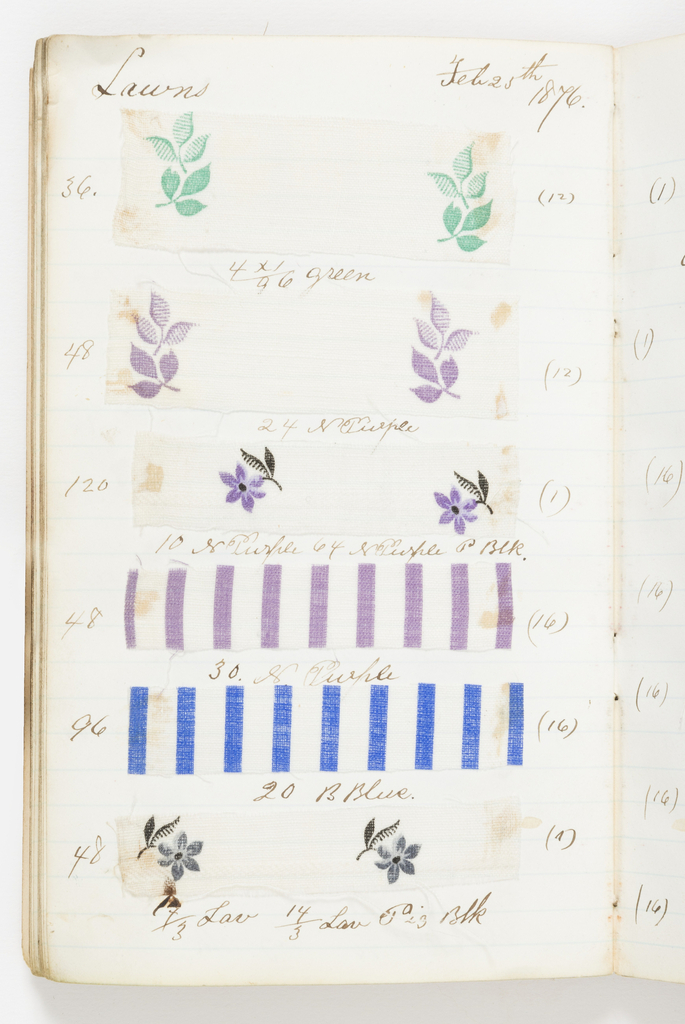 Lawns Feb 25th 1876.
36. (12) (1)
4 x1/96 green
48 (12) (1)
24 N Purple
120 (1) (16)
10 N Purple 64 N Purple P Blk.
48 (16) (16)
30. N Purple
96 (16) (16)
20 B Blue.
48 (1) (16)
17/3 Lav 14/3 Lav Blk
(16)